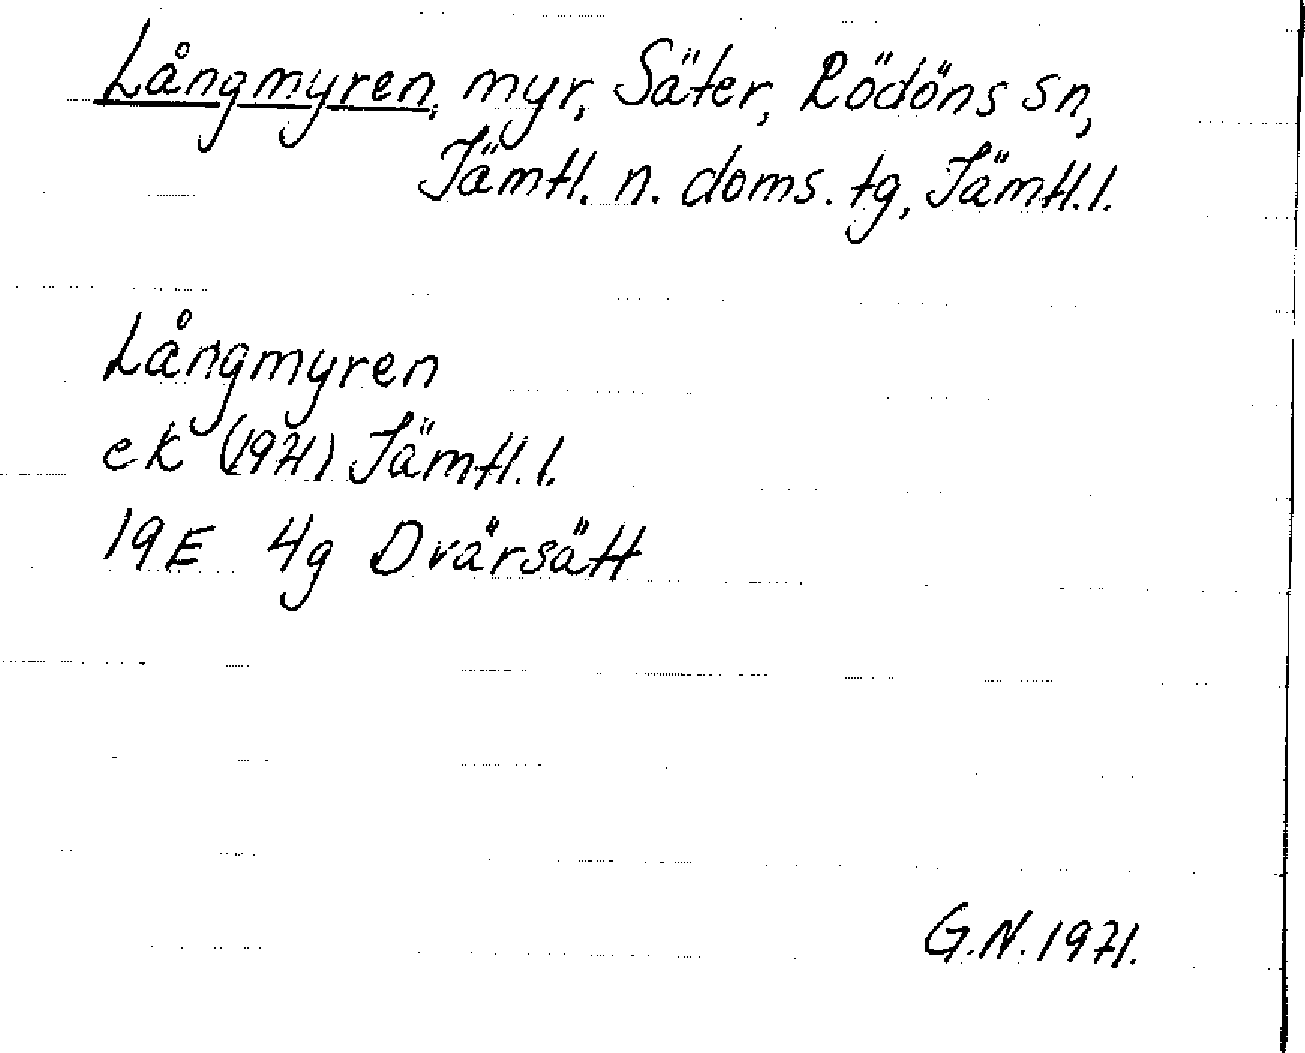 Långmyren, myr, Säter, Rödöns sn,
Jämtl. n. doms. tg, Jämtl.l.
Långmyren
ek (1971) Jämtl.l.
19E 4g Dvärsätt
G.N.1971.